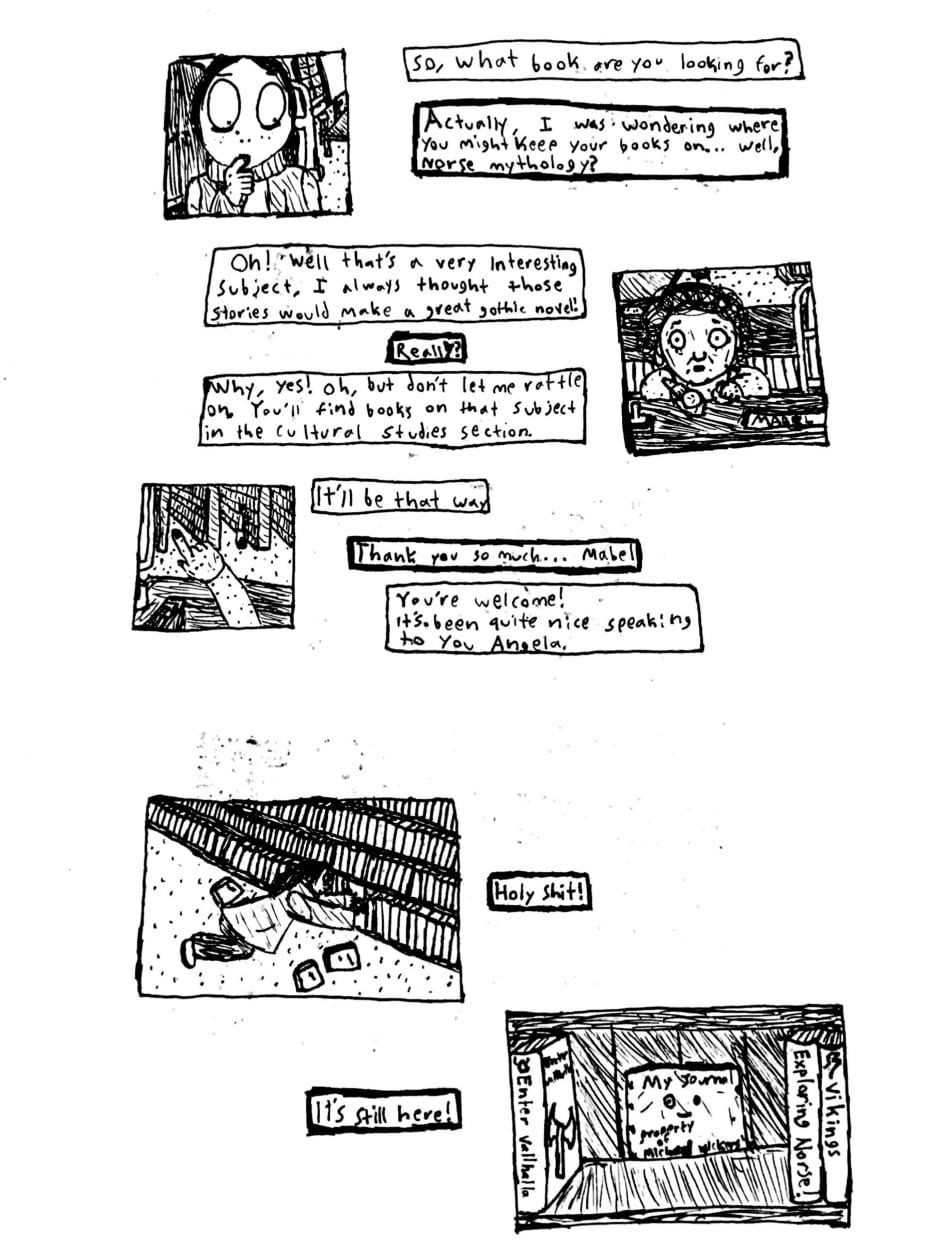 So, what book are you looking for?
Actually, I was wondering where
you might keep your books on... well,
Norse mythology?
Oh! Well that's a very interesting
subject, I always thought those
stories would make a great gothic novel!
Really?
Why, yes! Oh, but don't let me rattle
on, You'll find books on that subject
in the Cultural Studies section.
MABEL
It'll be that way
Thank you so much... Mabel
You're welcome!
It's been quite nice speaking
to you Angela.
Holy shit!
It's still here!
Enter Vallhalla
My Journal
property
of
Michael
Exploring Norse!
Vikings